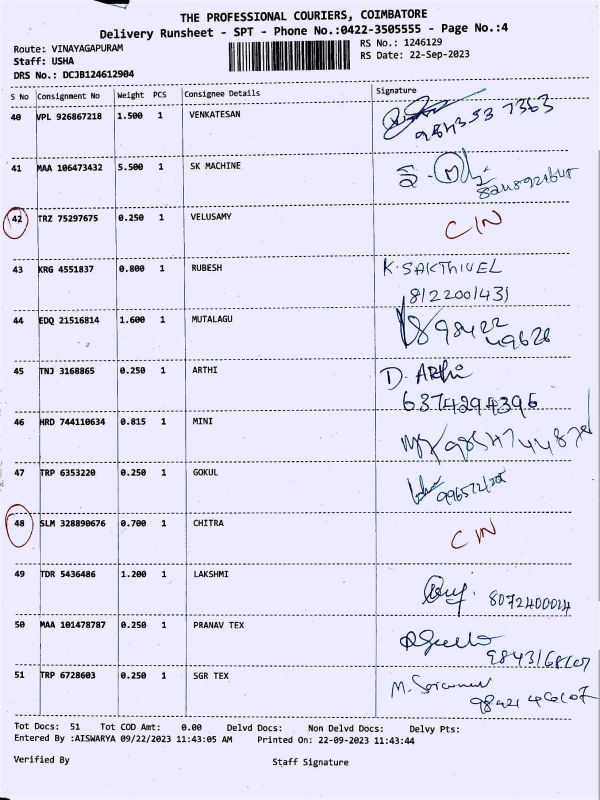 THE PROFESSIONAL COURIERS, COIMBATORE
Delivery Runsheet - SPT - Phone No.:0422-3505555 - Page No.:4
Route: VINAYAGAPURAM
RS No.: 1246129
Staff: USHA
RS Date: 22-Sep-2023
DRS No.: DCJB124612904
S No Consignment No Weight PCS Consignee Details Signature
40 VPL 926867218 1.500 1 VENKATESAN
41 MAA 106473432 5.500 1 SK MACHINE
42 TRZ 75297675 0.250 1 VELUSAMY CIN
43 KRG 4551837 0.800 1 RUBESH K.SAKTHIVEL
8122001431
44 EDQ 21516814 1.600 1 MUTALAGU 98422
49626
45 TNJ 3168865 0.250 1 ARTHI D. ARthi
6374294396
46 HRD 744110634 0.815 1 MINI
47 TRP 6353220 0.250 1 GOKUL
48 SLM 328890676 0.700 1 CHITRA CIN
49 TDR 5436486 1.200 1 LAKSHMI
8072400014
50 MAA 101478787 0.250 1 PRANAV TEX
51 TRP 6728603 0.250 1 SGR TEX
Tot Docs: 51 Tot COD Amt: 0.00 Delvd Docs: Non Delvd Docs: Delvy Pts:
Entered By :AISWARYA 09/22/2023 11:43:05 AM Printed On: 22-09-2023 11:43:44
Verified By Staff Signature